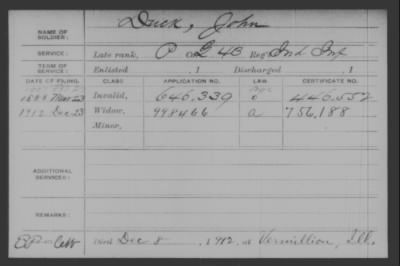 Duck, John
NAME OF SOLDIER:
SERVICE: Late rank, P Co. E, 48 Reg't Ind Inf
TERM OF SERVICE: Enlisted , 1 Discharged , 1
DATE OF FILING. CLASS. APPLICATION NO. LAW. CERTIFICATE NO.
Invalid, 646,339 446,552
1912 Dec. 23 Widow, 998466 a 756,188
Minor,
ADDITIONAL SERVICES:
REMARKS:
Died Dec 8, 1912, at Vermillion, Ill.